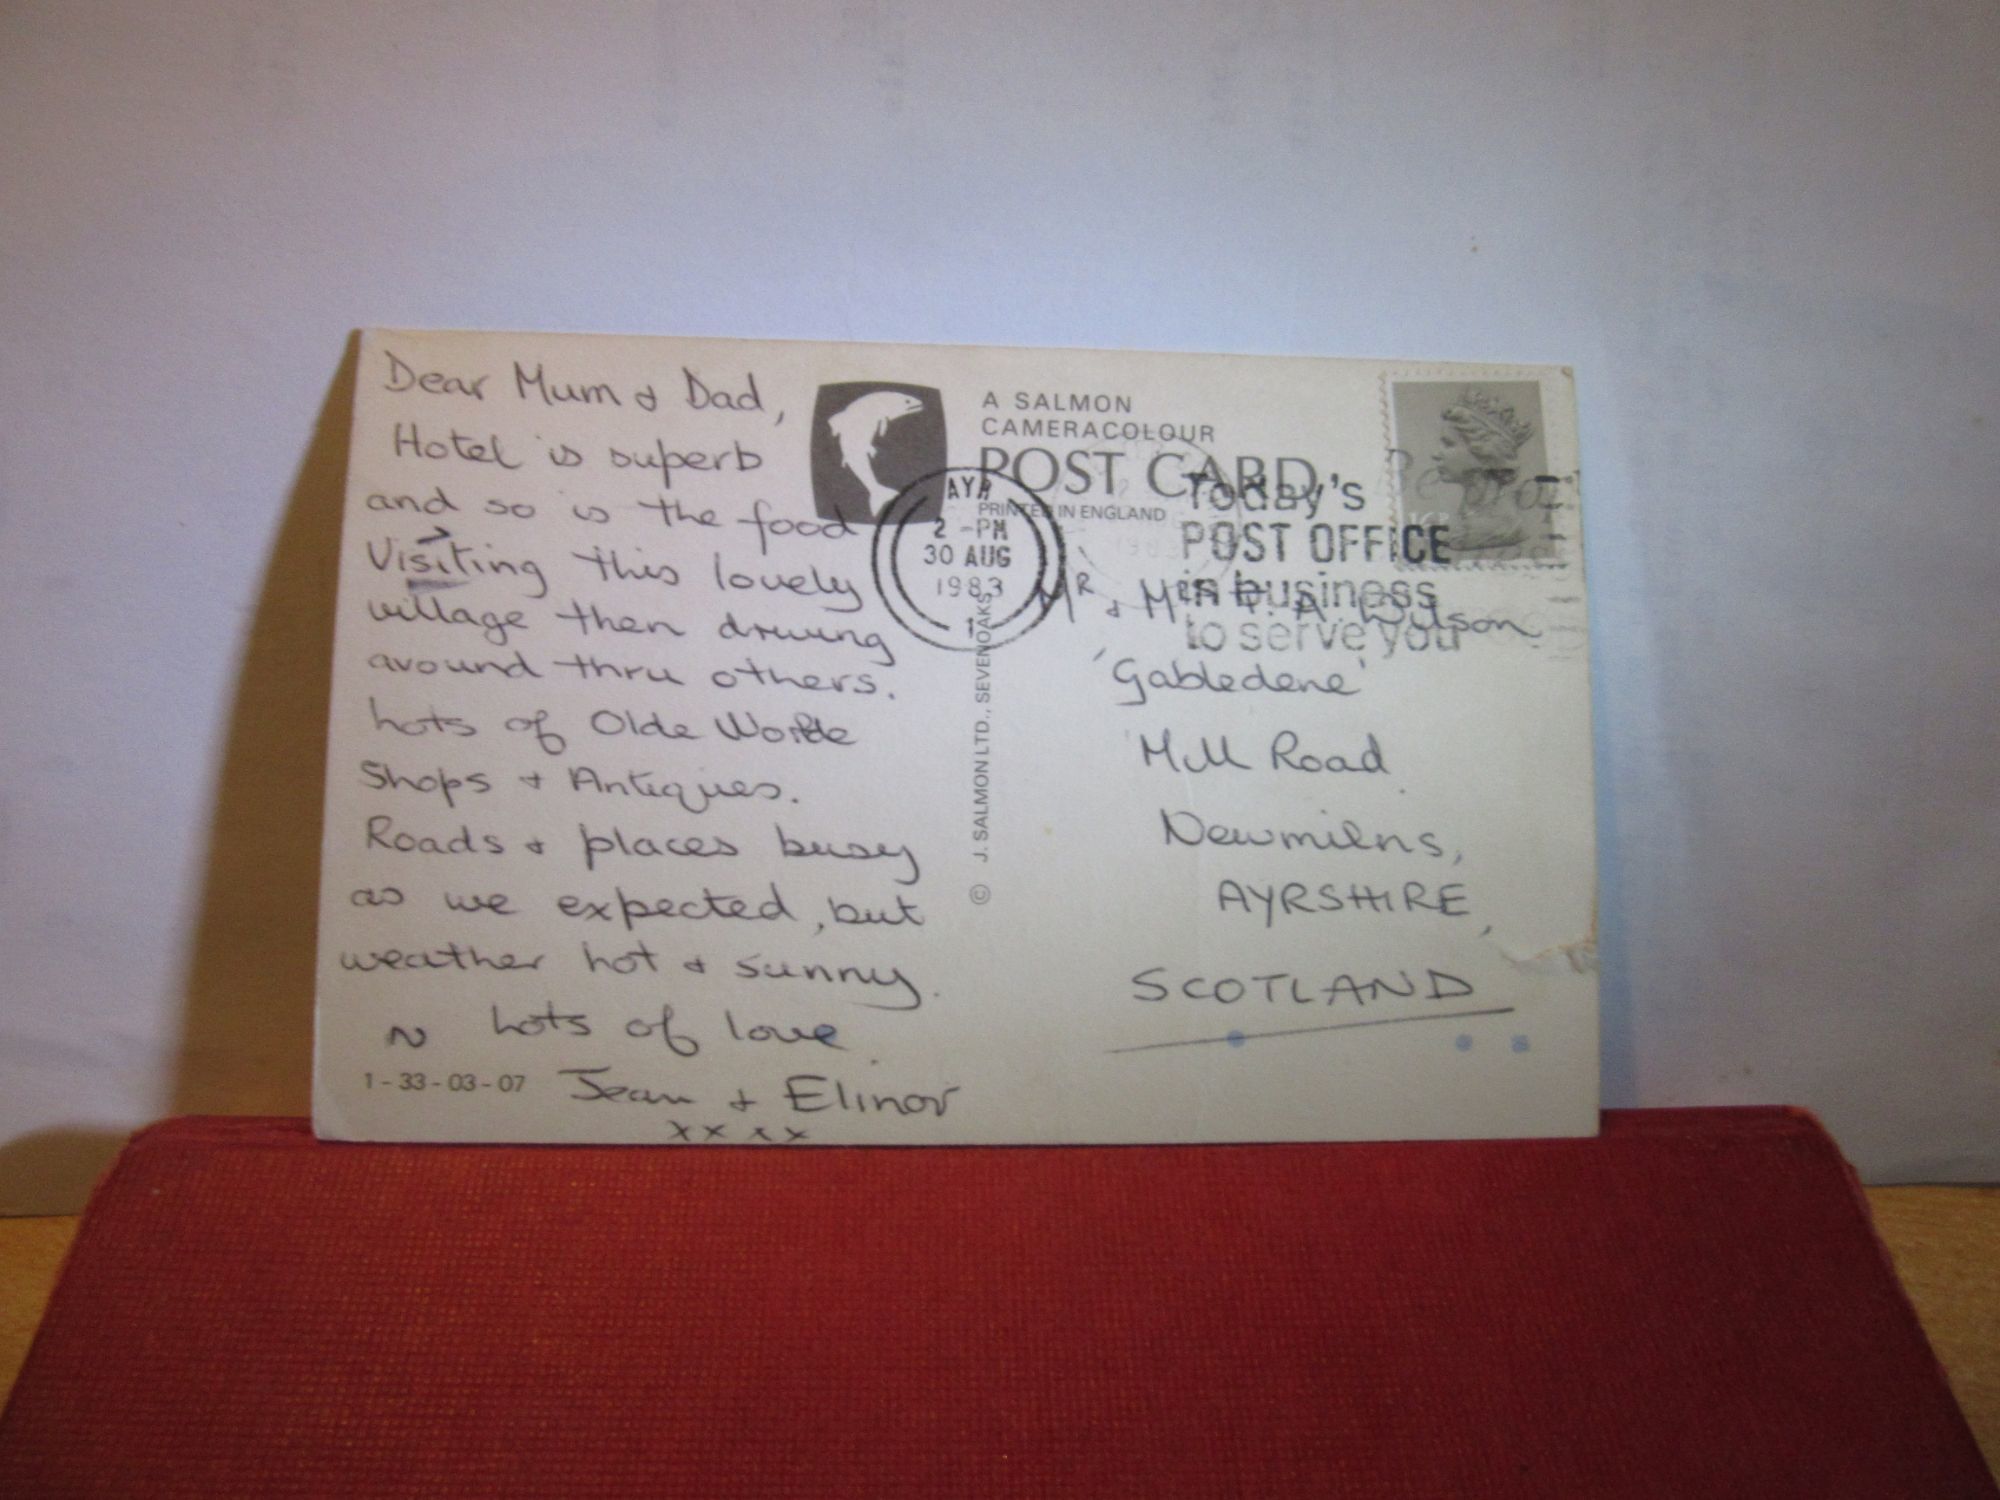 Dear Mum & Dad,
Hotel is superb
and so is the food
Visiting this lovely
village then driving
around thru others.
Lots of Olde Worlde
Shops & Antiques.
Roads & places busy
as we expected, but
weather hot & sunny.
~ Lots of love
1-33-03-07
Jean & Elinor
xx xx
A SALMON
CAMERACOLOUR
POST CARD
PRINTED IN ENGLAND
© J. SALMON LTD., SEVENOAKS
AYR
2 - PM
30 AUG
1983
1
Today's
POST OFFICE
in business
to serve you
Mr & Mrs A. Wilson
'Gabledene'
Mill Road
Newmilns,
AYRSHIRE,
SCOTLAND